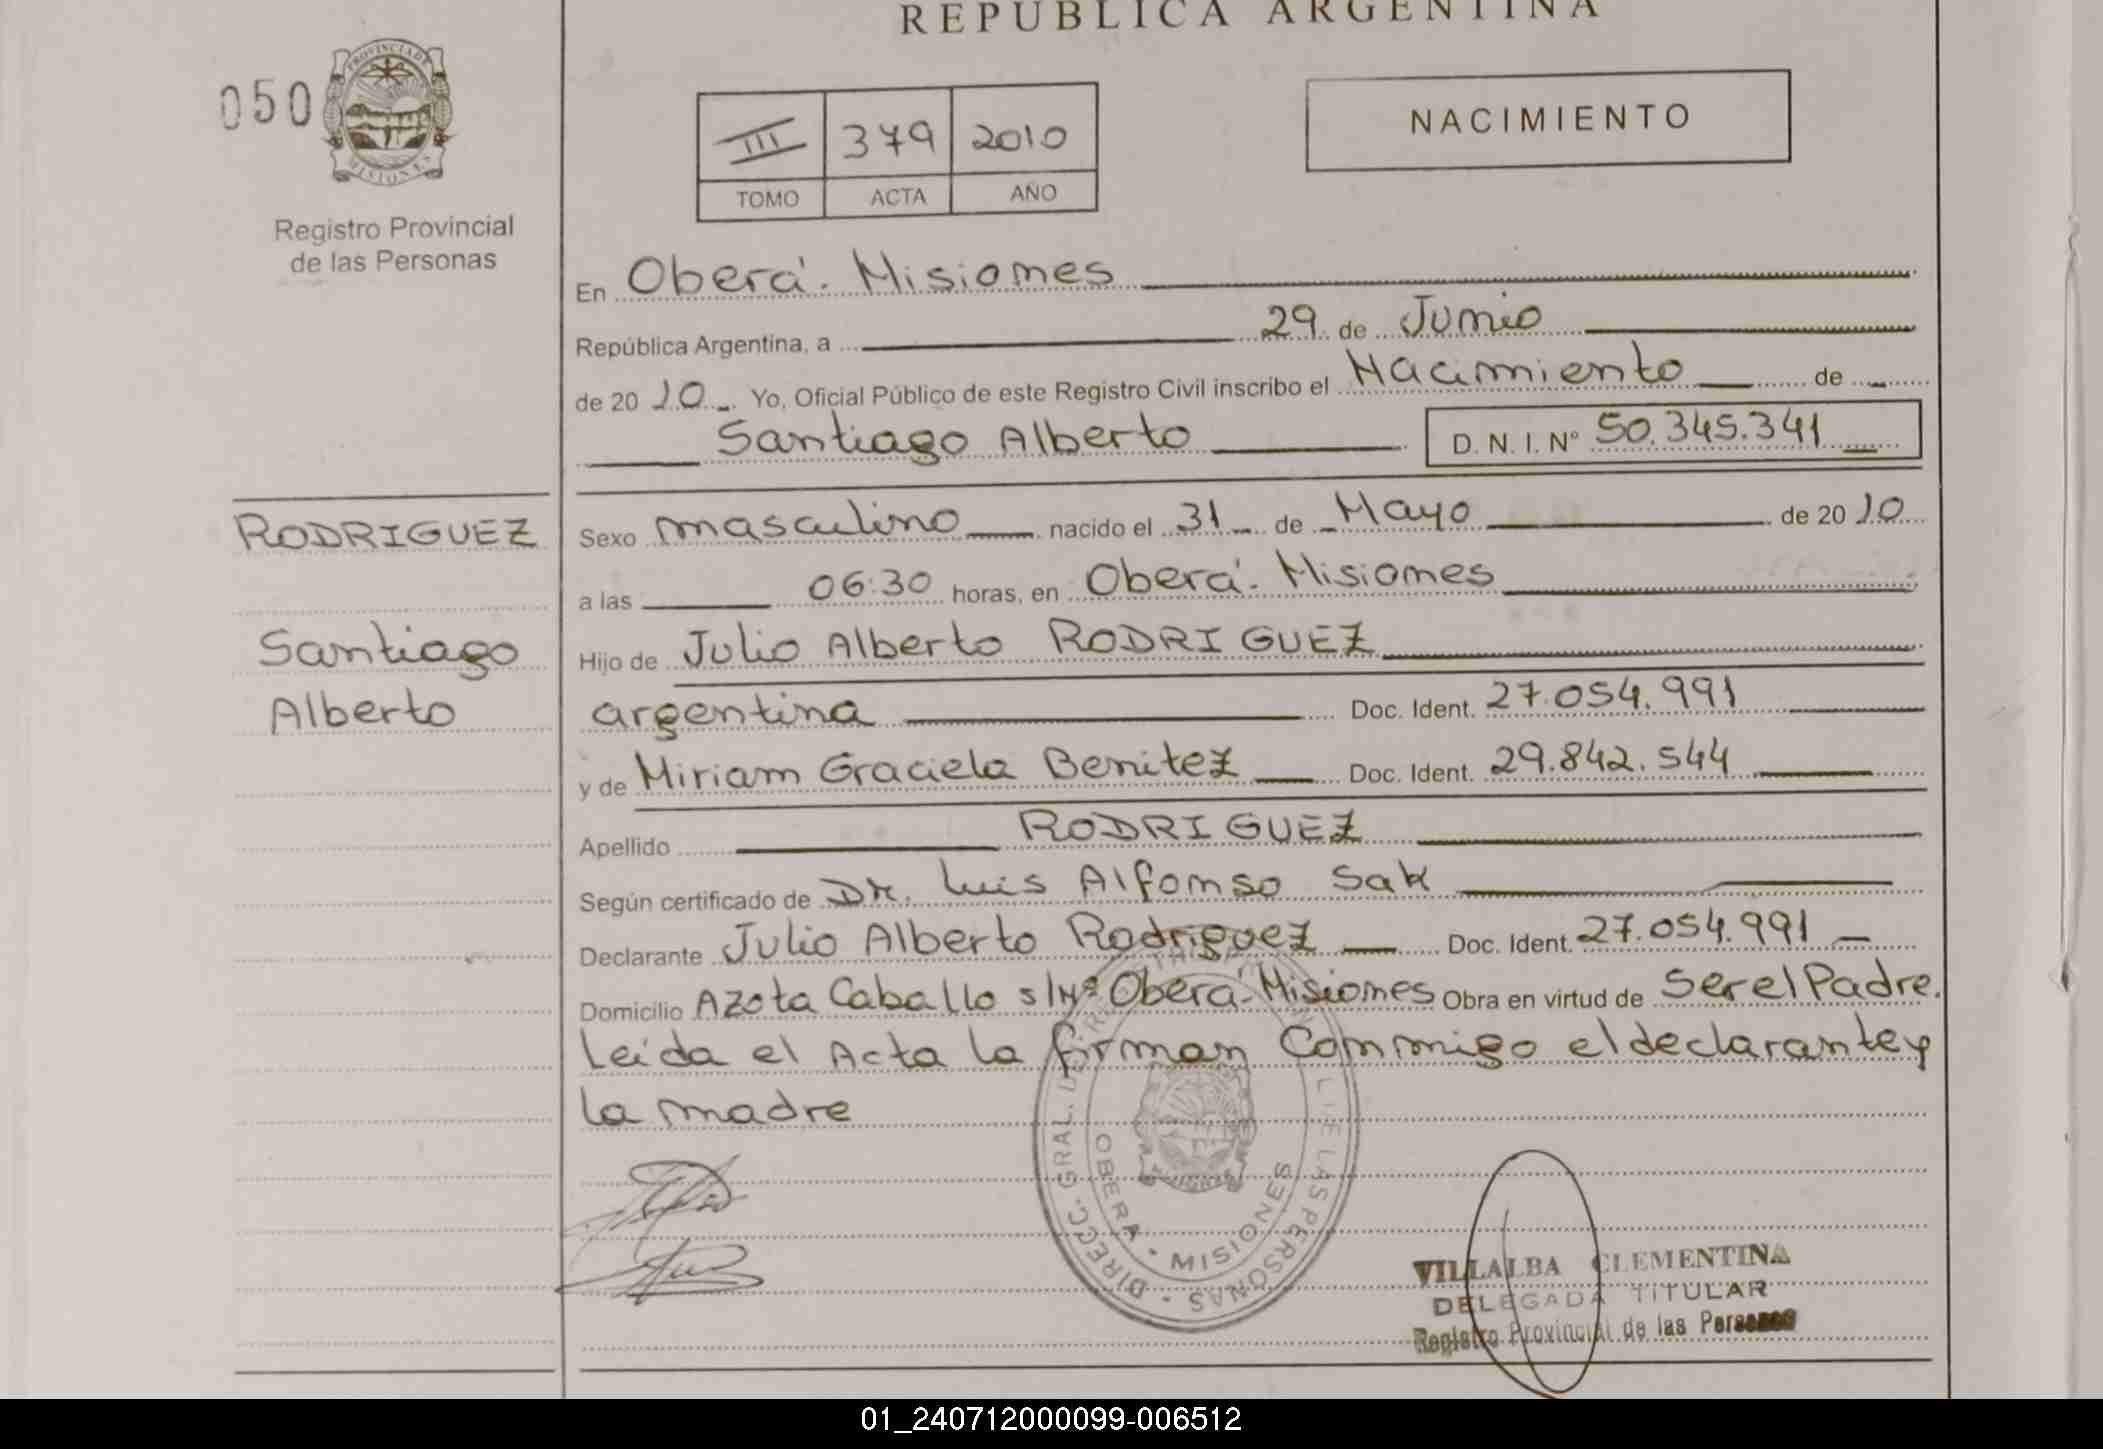 REPUBLICA ARGENTINA
050
PROVINCIA DE
MISIONES
Registro Provincial
de las Personas
III 379 2010
TOMO ACTA AÑO
NACIMIENTO
En Oberá. Misiones
República Argentina, a 29 de Junio
de 20 10 Yo, Oficial Público de este Registro Civil inscribo el Nacimiento de
Santiago Alberto D. N. I. N° 50.345.341
RODRIGUEZ
Santiago
Alberto
Sexo masculino nacido el 31 de Mayo de 20 10
a las 06:30 horas, en Oberá. Misiones
Hijo de Julio Alberto RODRIGUEZ
argentina Doc. Ident. 27.054.991
y de Miriam Graciela Benitez Doc. Ident. 29.842.544
Apellido RODRIGUEZ
Según certificado de Dr. Luis Alfonso Sak
Declarante Julio Alberto Rodriguez Doc. Ident. 27.054.991
Domicilio Azota Caballo s/Nº Oberá-Misiones Obra en virtud de Ser el Padre.
Leída el Acta la firman Conmigo el declarante y
la madre
DIRECC. GRAL. DE LAS PERSONAS
OBERA • MISIONES
VILLALBA CLEMENTINA
DELEGADA TITULAR
Registro Provincial de las Personas
01_240712000099-006512